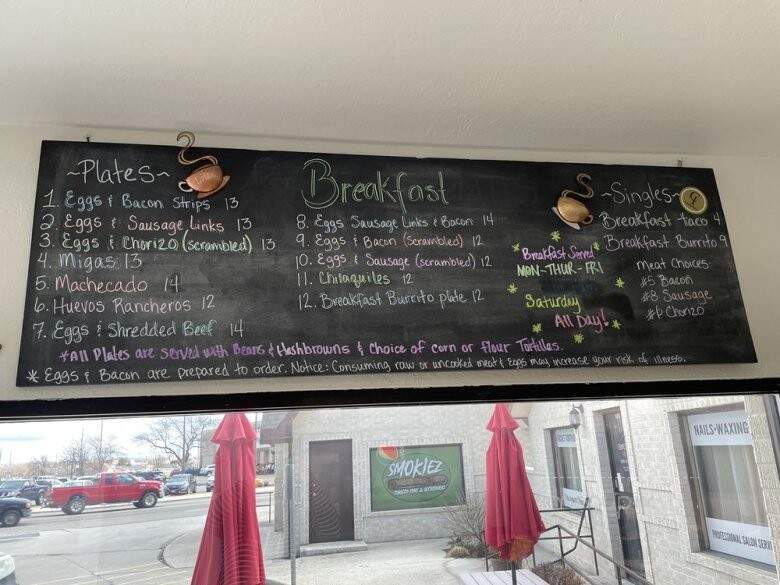 ~Plates~
1. Eggs & Bacon Strips 13
2. Eggs & Sausage Links 13
3. Eggs & Chorizo (scrambled) 13
4. Migas 13
5. Machecado 14
6. Huevos Rancheros 12
7. Eggs & Shredded Beef 14
Breakfast
8. Eggs Sausage Links & Bacon 14
9. Eggs & Bacon (scrambled) 12
10. Eggs & Sausage (scrambled) 12
11. Chilaquiles 12
12. Breakfast Burrito plate 12
Breakfast Served
MON-THUR-FRI
Saturday
All Day!
~Singles~
Breakfast taco 4
Breakfast Burrito 9
Meat Choices:
#5 Bacon
#8 Sausage
#6 Chorizo
*All Plates are served with Beans & Hashbrowns & Choice of corn or flour Tortillas.
* Eggs & Bacon are prepared to order. Notice: Consuming raw or uncooked meat & Eggs may increase your risk of illness.
SMOKIEZ
NAILS•WAXING
PROFESSIONAL SALON SERVI